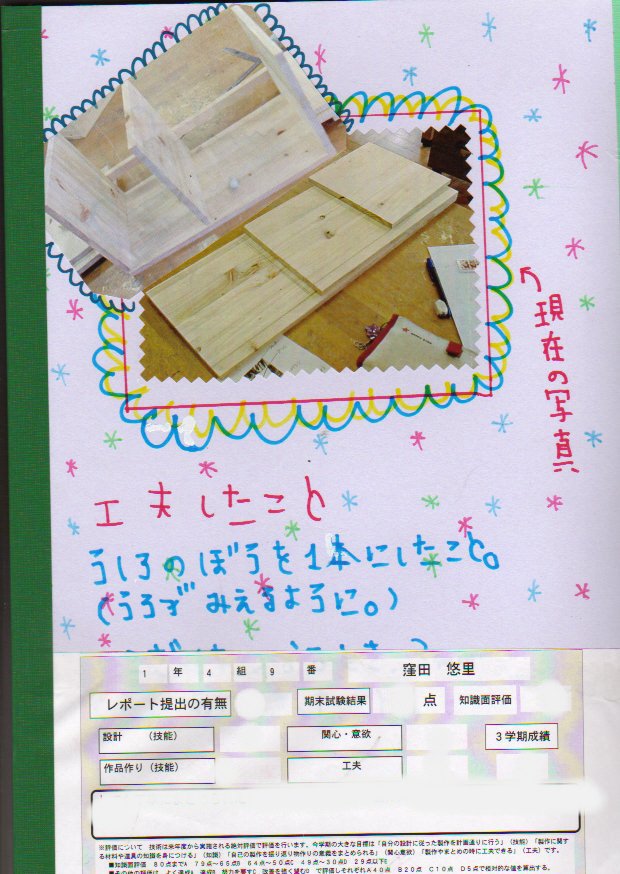 現在の写真
工夫したこと
うしろのぼうを1本にしたこと。
(うらがみえるように。)
1 年 4 組 9 番 窪田 悠里
レポート提出の有無 期末試験結果 点 知識面評価
設計 (技能) 関心・意欲 3学期成績
作品作り(技能) 工夫
※評価について 技術は来年度から実施される絶対評価で評価を行います。今学期の大きな目標は「自分の設計に従った製作を計画通りに行う」(技能)「製作に関す
る材料や道具の知識を身につける」(知識)「自己の製作を振り返り物作りの意義をまとめられる」(関心意欲)「製作やまとめの時に工夫できる」(工夫)です。
■知識面評価 80点までA 79点~65点B 64点~50点C 49点~30点D 29点以下E